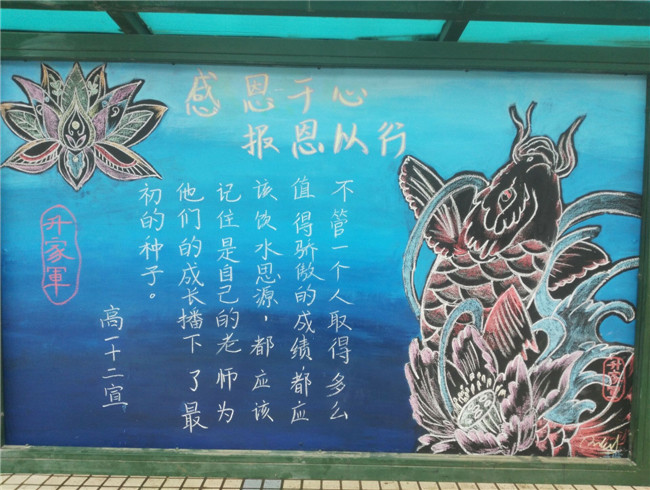 感恩于心
报恩以行
不管一个人取得多么
值得骄傲的成绩,都应
该饮水思源,都应该
记住是自己的老师为
他们的成长播下了最
初的种子。
高一十二宣
升家軍